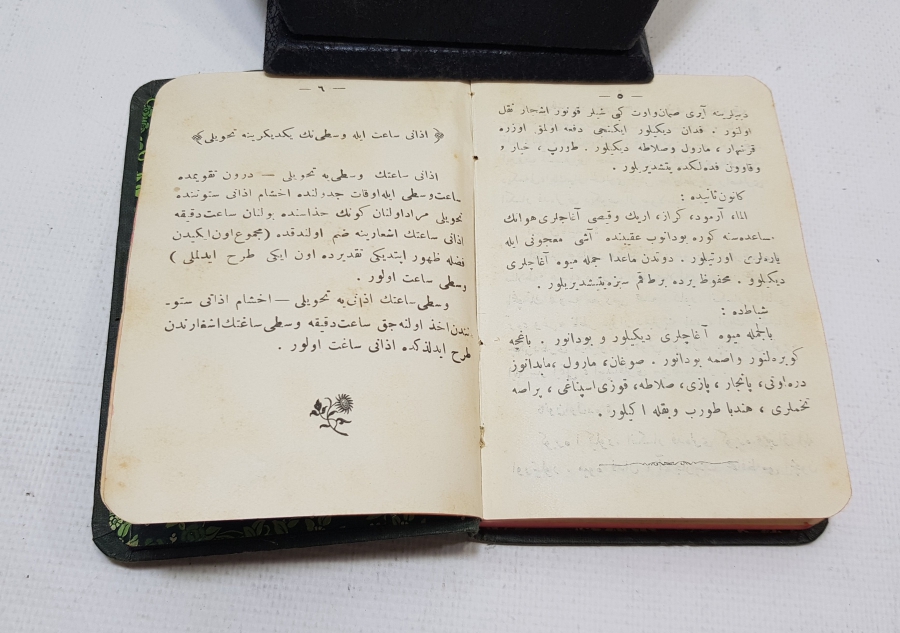 — ٥ —
دیبلرینه آیری صمان واوت کبی شیلر قونور اشجار نقل
اولنور . فدان دیکیلور ایکنجی دفعه اولمق اوزره
قرنبهار ، مارول وصلاطه دیکیلور . طورپ ، خیار و
وقاوون فده‌لکده یتشدیریلور .
کانون ثانیده :
الما، آرمود، کراز، اریك وقیصی آغاجلری هوانك
مساعده‌سنه کوره بودانوب عقیبنده آشی معجونی ایله
یاره‌لری اورتیلور . دوندن ماعدا جمله میوه آغاجلری
دیکیلور . محفوظ یرده برطقم سبزه یتشدیریلور .
شباطده :
بالجمله میوه آغاجلری دیکیلور و بودانور . باغچه
کوبره‌لنور واصمه بودانور . صوغان، مارول ، مایدانوز
دره‌اوتی، پانجار ، پازی، صلاطه، قوزی اسپناغی ، پراصه
تخملری ، هندبا طورب وبقله اکیلور .
— ٦ —
﴿ اذانی ساعت ایله وسطی‌نك یکدیکرینه تحویلی ﴾
اذانی ساعتك وسطی‌یه تحویلی — درون تقویمده
ساعت وسطی ایله اوقات جدولنده اخشام اذانی ستوننده
تحویلی مراد اولنان کونك حذاسنده بولنان ساعت دقیقه
اذانی ساعتك اشعارینه ضم اولندقده (مجموع اون‌ایکیدن
فضله ظهور ایتدیکی تقدیرده اون ایکی طرح ایدلملی )
وسطی ساعت اولور .
وسطی ساعتك اذانی‌یه تحویلی — اخشام اذانی ستو-
نندن اخذ اولنه‌جق ساعت دقیقه وسطی ساعتك اشعارندن
طرح ایدلدکده اذانی ساعت اولور .